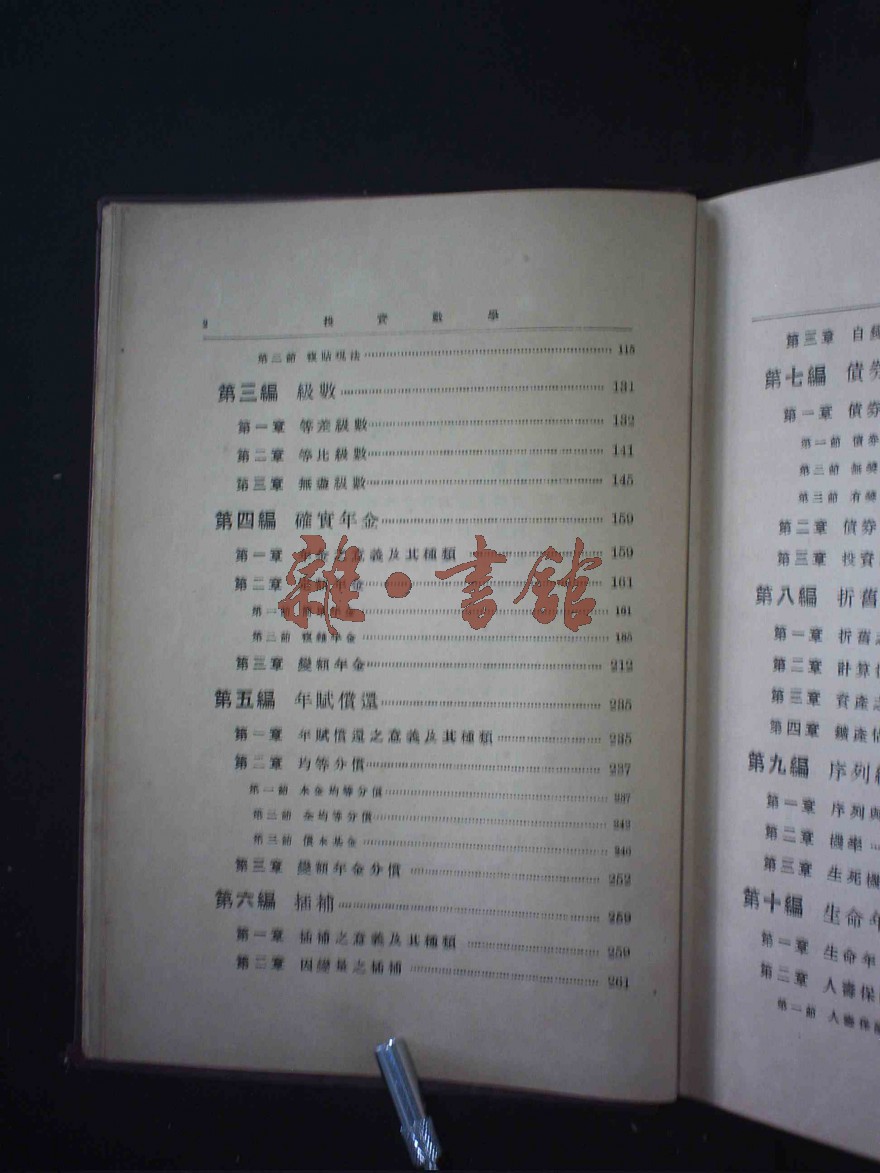 2 投資數學
第二節 複貼現法 115
第三編 級數 131
第一章 等差級數 132
第二章 等比級數 141
第三章 無盡級數 145
第四編 確實年金 159
第一章 年金之意義及其種類 159
第二章 定額年金 161
第一節 161
第二節 複雜年金 185
第三章 變額年金 212
第五編 年賦償還 235
第一章 年賦償還之意義及其種類 235
第二章 均等分償 237
第一節 本金均等分償 237
第二節 全均等分償 242
第三節 償本基金 246
第三章 變額年金分償 252
第六編 插補 259
第一章 插補之意義及其種類 259
第二章 因變量之插補 261
雜·書館
第三章 自
第七編 債券
第一章 債券
第一節 債券
第二節 無獎
第三節 有獎
第二章 債券
第三章 投資
第八編 折舊
第一章 折舊之
第二章 計算
第三章 資產
第四章 鑛產估
第九編 序列
第一章 序列與
第二章 機率
第三章 生死機
第十編 生命年
第一章 生命年
第二章 人壽保
第一節 人壽保